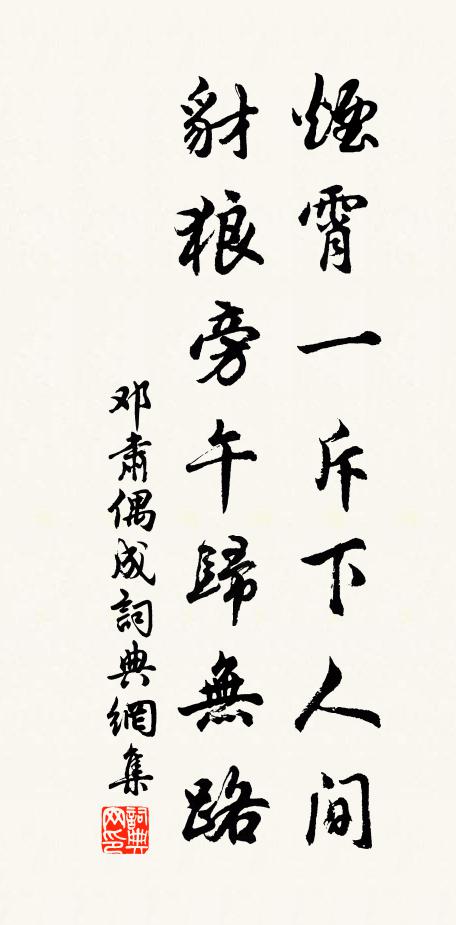 煙霄一斥下人间
豺狼旁午歸無路
邓肃偶成詞典網集
詞典网印